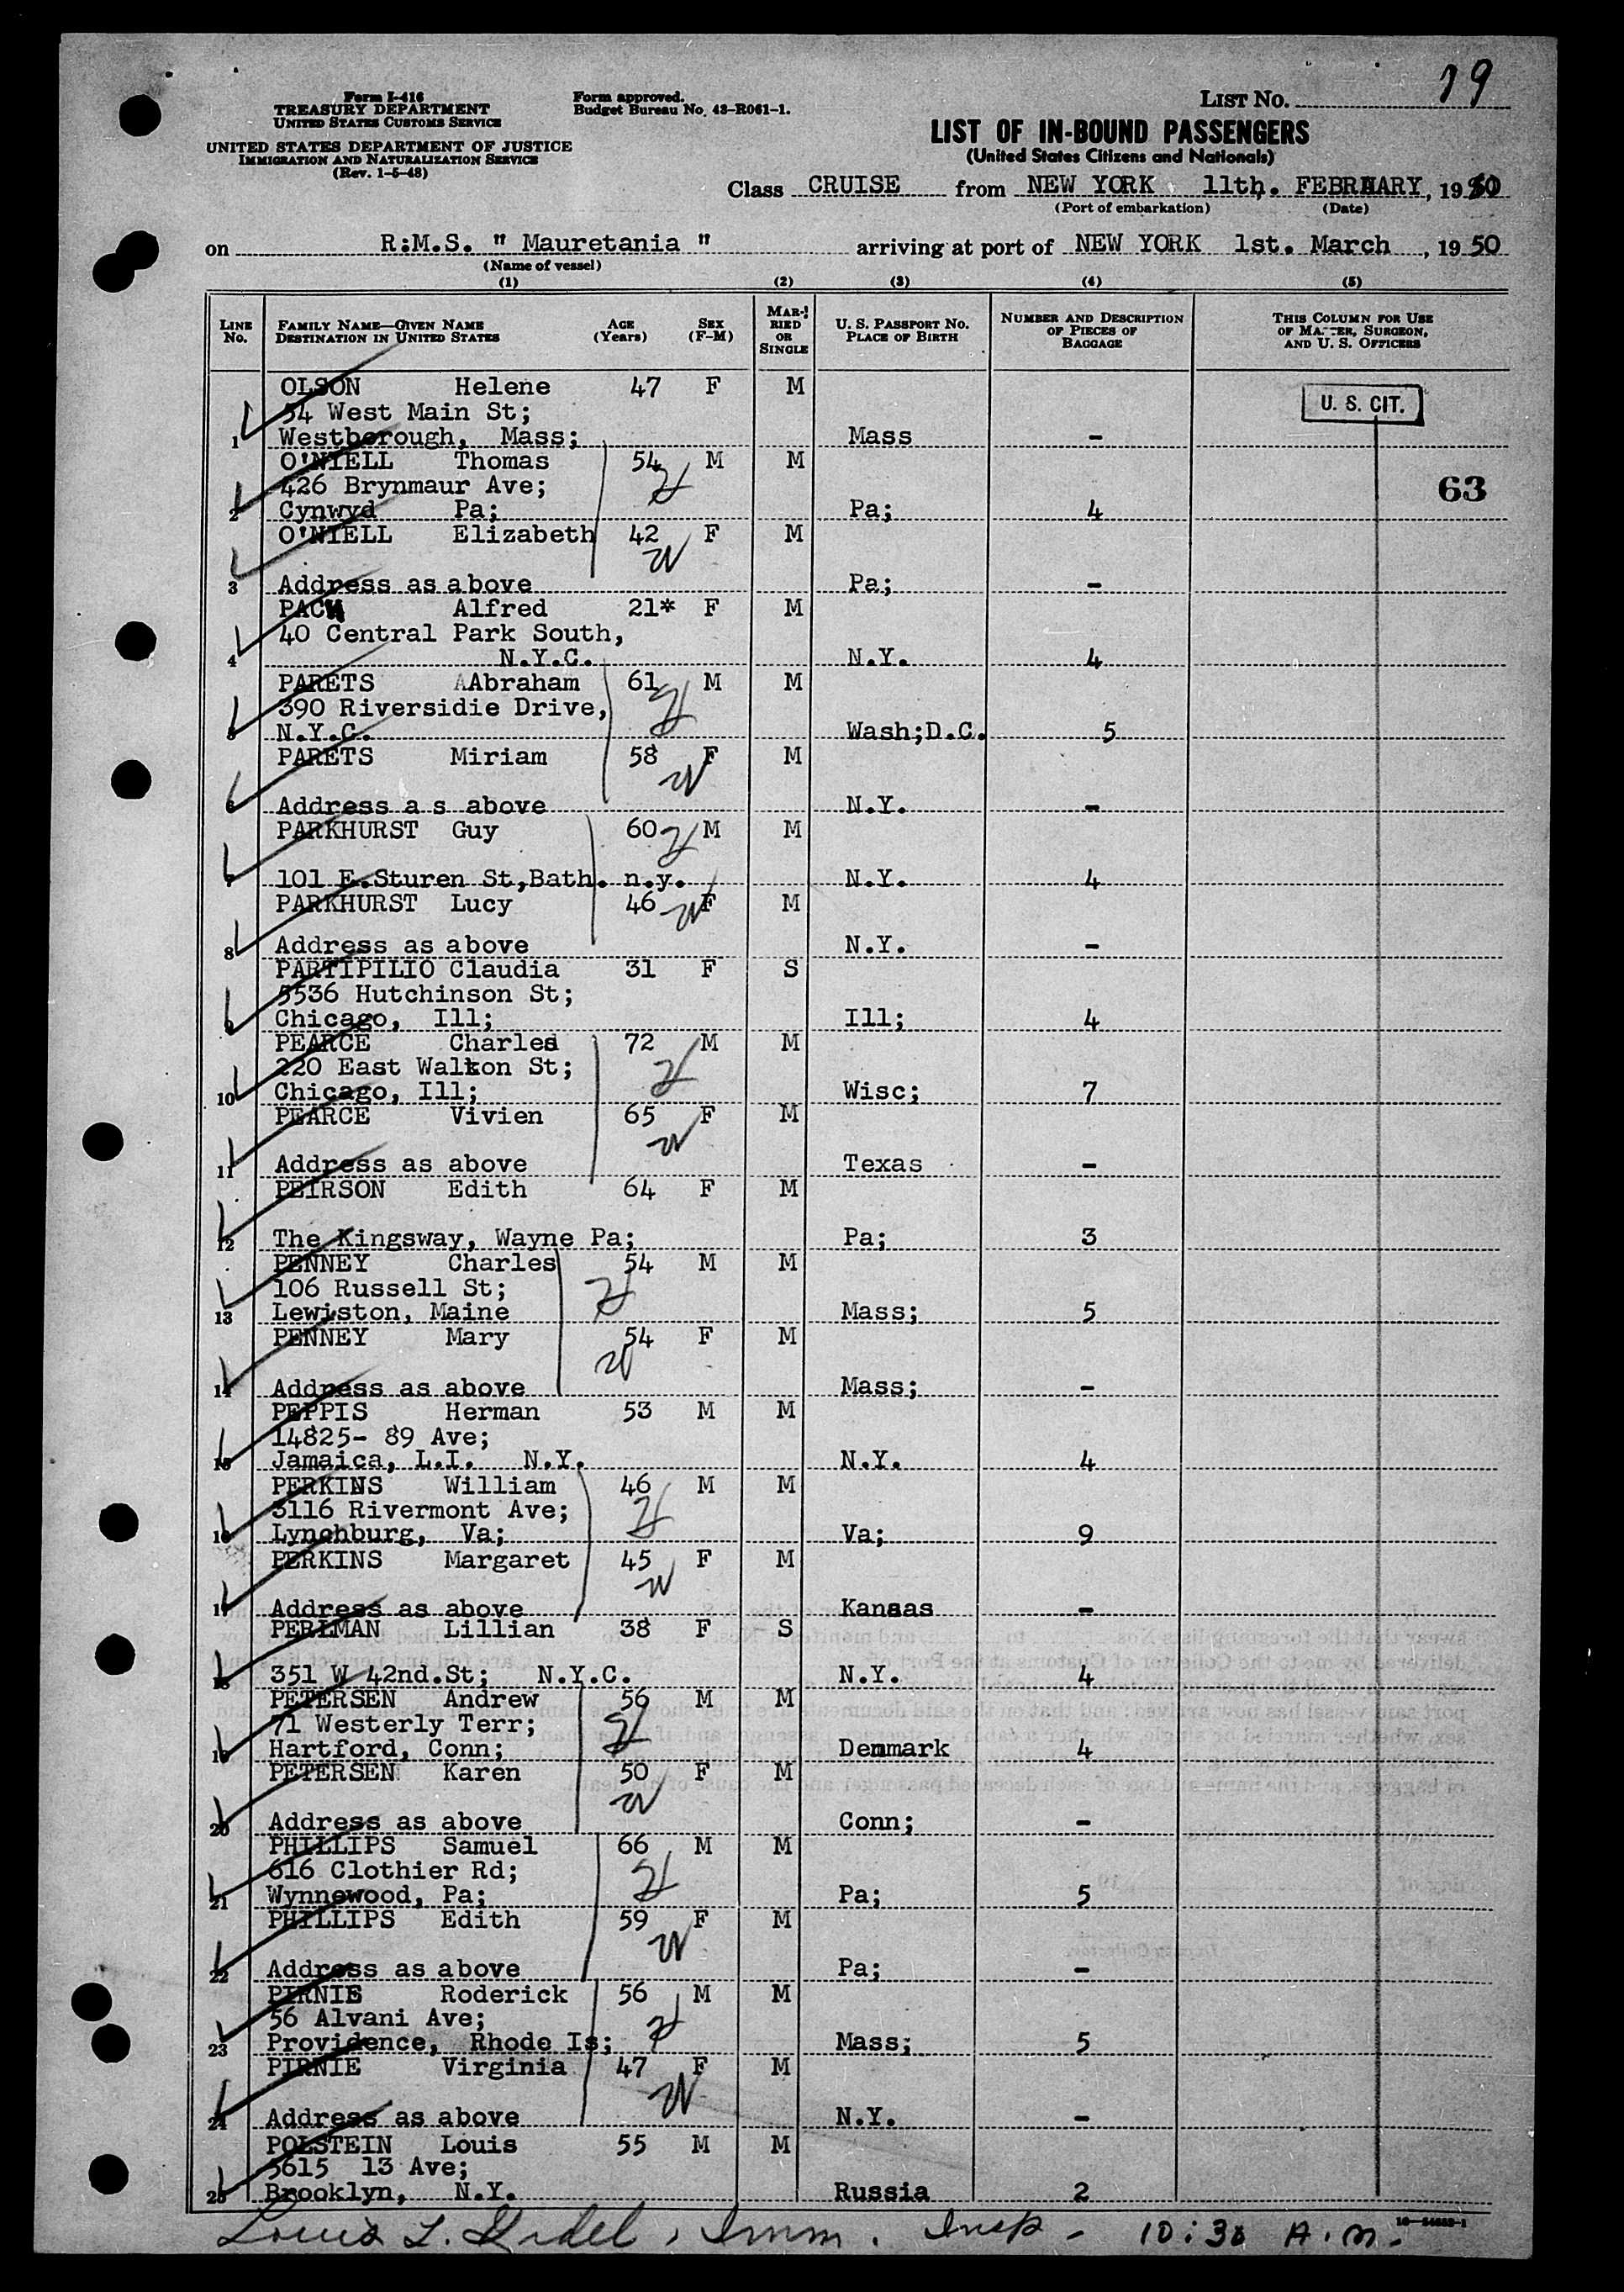 19
Form I-416
TREASURY DEPARTMENT
UNITED STATES CUSTOMS SERVICE
UNITED STATES DEPARTMENT OF JUSTICE
IMMIGRATION AND NATURALIZATION SERVICE
(Rev. 1-5-48)
Form approved.
Budget Bureau No. 43-R061-1.
LIST NO.
LIST OF IN-BOUND PASSENGERS
(United States Citizens and Nationals)
Class CRUISE from NEW YORK 11th. FEBRUARY, 1950
(Port of embarkation) (Date)
on R:M.S. " Mauretania " arriving at port of NEW YORK 1st. March, 1950
(Name of vessel)
(1) (2) (3) (4) (5)
LINE No. FAMILY NAME—GIVEN NAME DESTINATION IN UNITED STATES AGE (Years) SEX (F-M) MARRIED OR SINGLE U. S. PASSPORT NO. PLACE OF BIRTH NUMBER AND DESCRIPTION OF PIECES OF BAGGAGE THIS COLUMN FOR USE OF MASTER, SURGEON, AND U. S. OFFICERS
OLSON Helene 47 F M
54 West Main St; U. S. CIT.
1 Westborough, Mass; Mass -
O'NIELL Thomas 54 M M
426 Brynmaur Ave; 63
2 Cynwyd Pa; Pa; 4
O'NIELL Elizabeth 42 F M
3 Address as above Pa; -
PACH Alfred 21* F M
40 Central Park South,
4 N.Y.C. N.Y. 4
PARETS AAbraham 61 M M
390 Riversidie Drive,
5 N.Y.C. Wash;D.C. 5
PARETS Miriam 58 F M
6 Address a s above N.Y. -
PARKHURST Guy 60 M M
7 101 E.Sturen St,Bath. n.y. N.Y. 4
PARKHURST Lucy 46 F M
8 Address as above N.Y. -
PARTIPILIO Claudia 31 F S
5536 Hutchinson St;
9 Chicago, Ill; Ill; 4
PEARCE Charles 72 M M
220 East Walton St;
10 Chicago, Ill; Wisc; 7
PEARCE Vivien 65 F M
11 Address as above Texas -
PEIRSON Edith 64 F M
12 The Kingsway, Wayne Pa; Pa; 3
PENNEY Charles 54 M M
106 Russell St;
13 Lewiston, Maine Mass; 5
PENNEY Mary 54 F M
14 Address as above Mass; -
PEPPIS Herman 53 M M
14825- 89 Ave;
15 Jamaica, L.I. N.Y. N.Y. 4
PERKINS William 46 M M
3116 Rivermont Ave;
16 Lynchburg, Va; Va; 9
PERKINS Margaret 45 F M
17 Address as above Kansas -
PERLMAN Lillian 38 F S
18 351 W 42nd.St; N.Y.C. N.Y. 4
PETERSEN Andrew 56 M M
71 Westerly Terr;
19 Hartford, Conn; Denmark 4
PETERSEN Karen 50 F M
20 Address as above Conn; -
PHILLIPS Samuel 66 M M
616 Clothier Rd;
21 Wynnewood, Pa; Pa; 5
PHILLIPS Edith 59 F M
22 Address as above Pa; -
PIRNIE Roderick 56 M M
56 Alvani Ave;
23 Providence, Rhode Is; Mass; 5
PIRNIE Virginia 47 F M
24 Address as above N.Y. -
POLSTEIN Louis 55 M M
5615 13 Ave;
25 Brooklyn, N.Y. Russia 2
Louis L. , Imm. Insp - 10:30 A.M.